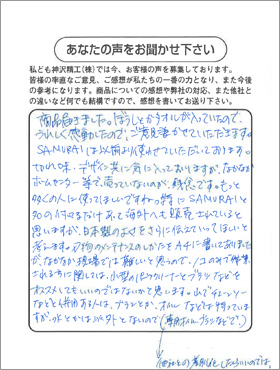 あなたの声をお聞かせ下さい
私ども神沢精工(株)では今、お客様の声を募集しております。
皆様の率直なご意見、ご感想が私たちの一番の力となり、また今後
の参考になります。商品についての感想や弊社の対応、また他社と
の違いなど何でも結構ですので、感想を書いてお送り下さい。
商品届きました。ぼうしとタオルが入っていたので、
うれしく感動したので、ご意見書かせていただきます。
SAMURAIは以前より使わせていただいております。
切れ味・デザイン共に気に入っておりますが、なかなか
ホームセンター等で、売っていないのが、残念です。もっと
多くの人に使ってほしいですね。特にSAMURAIと
名の付くものだけあって海外へも販売されていると
思いますが、日本製のよさをさらに伝えていってほしいと
考えます。刃物のメンテナンスのしかたをA4に書いてありました
が、なかなか現場では難しいと思うので、ノコのみで作業
される方に関しては、小型のパーツクリーナーとブラシなどを
オススメしてもいいのではないかと思います。山でチェーンソー
などと併用する人は、ブラシとか、オイルなどは持っています
が、水とかはないとないので
(専用オイル、ブラシなどで。)